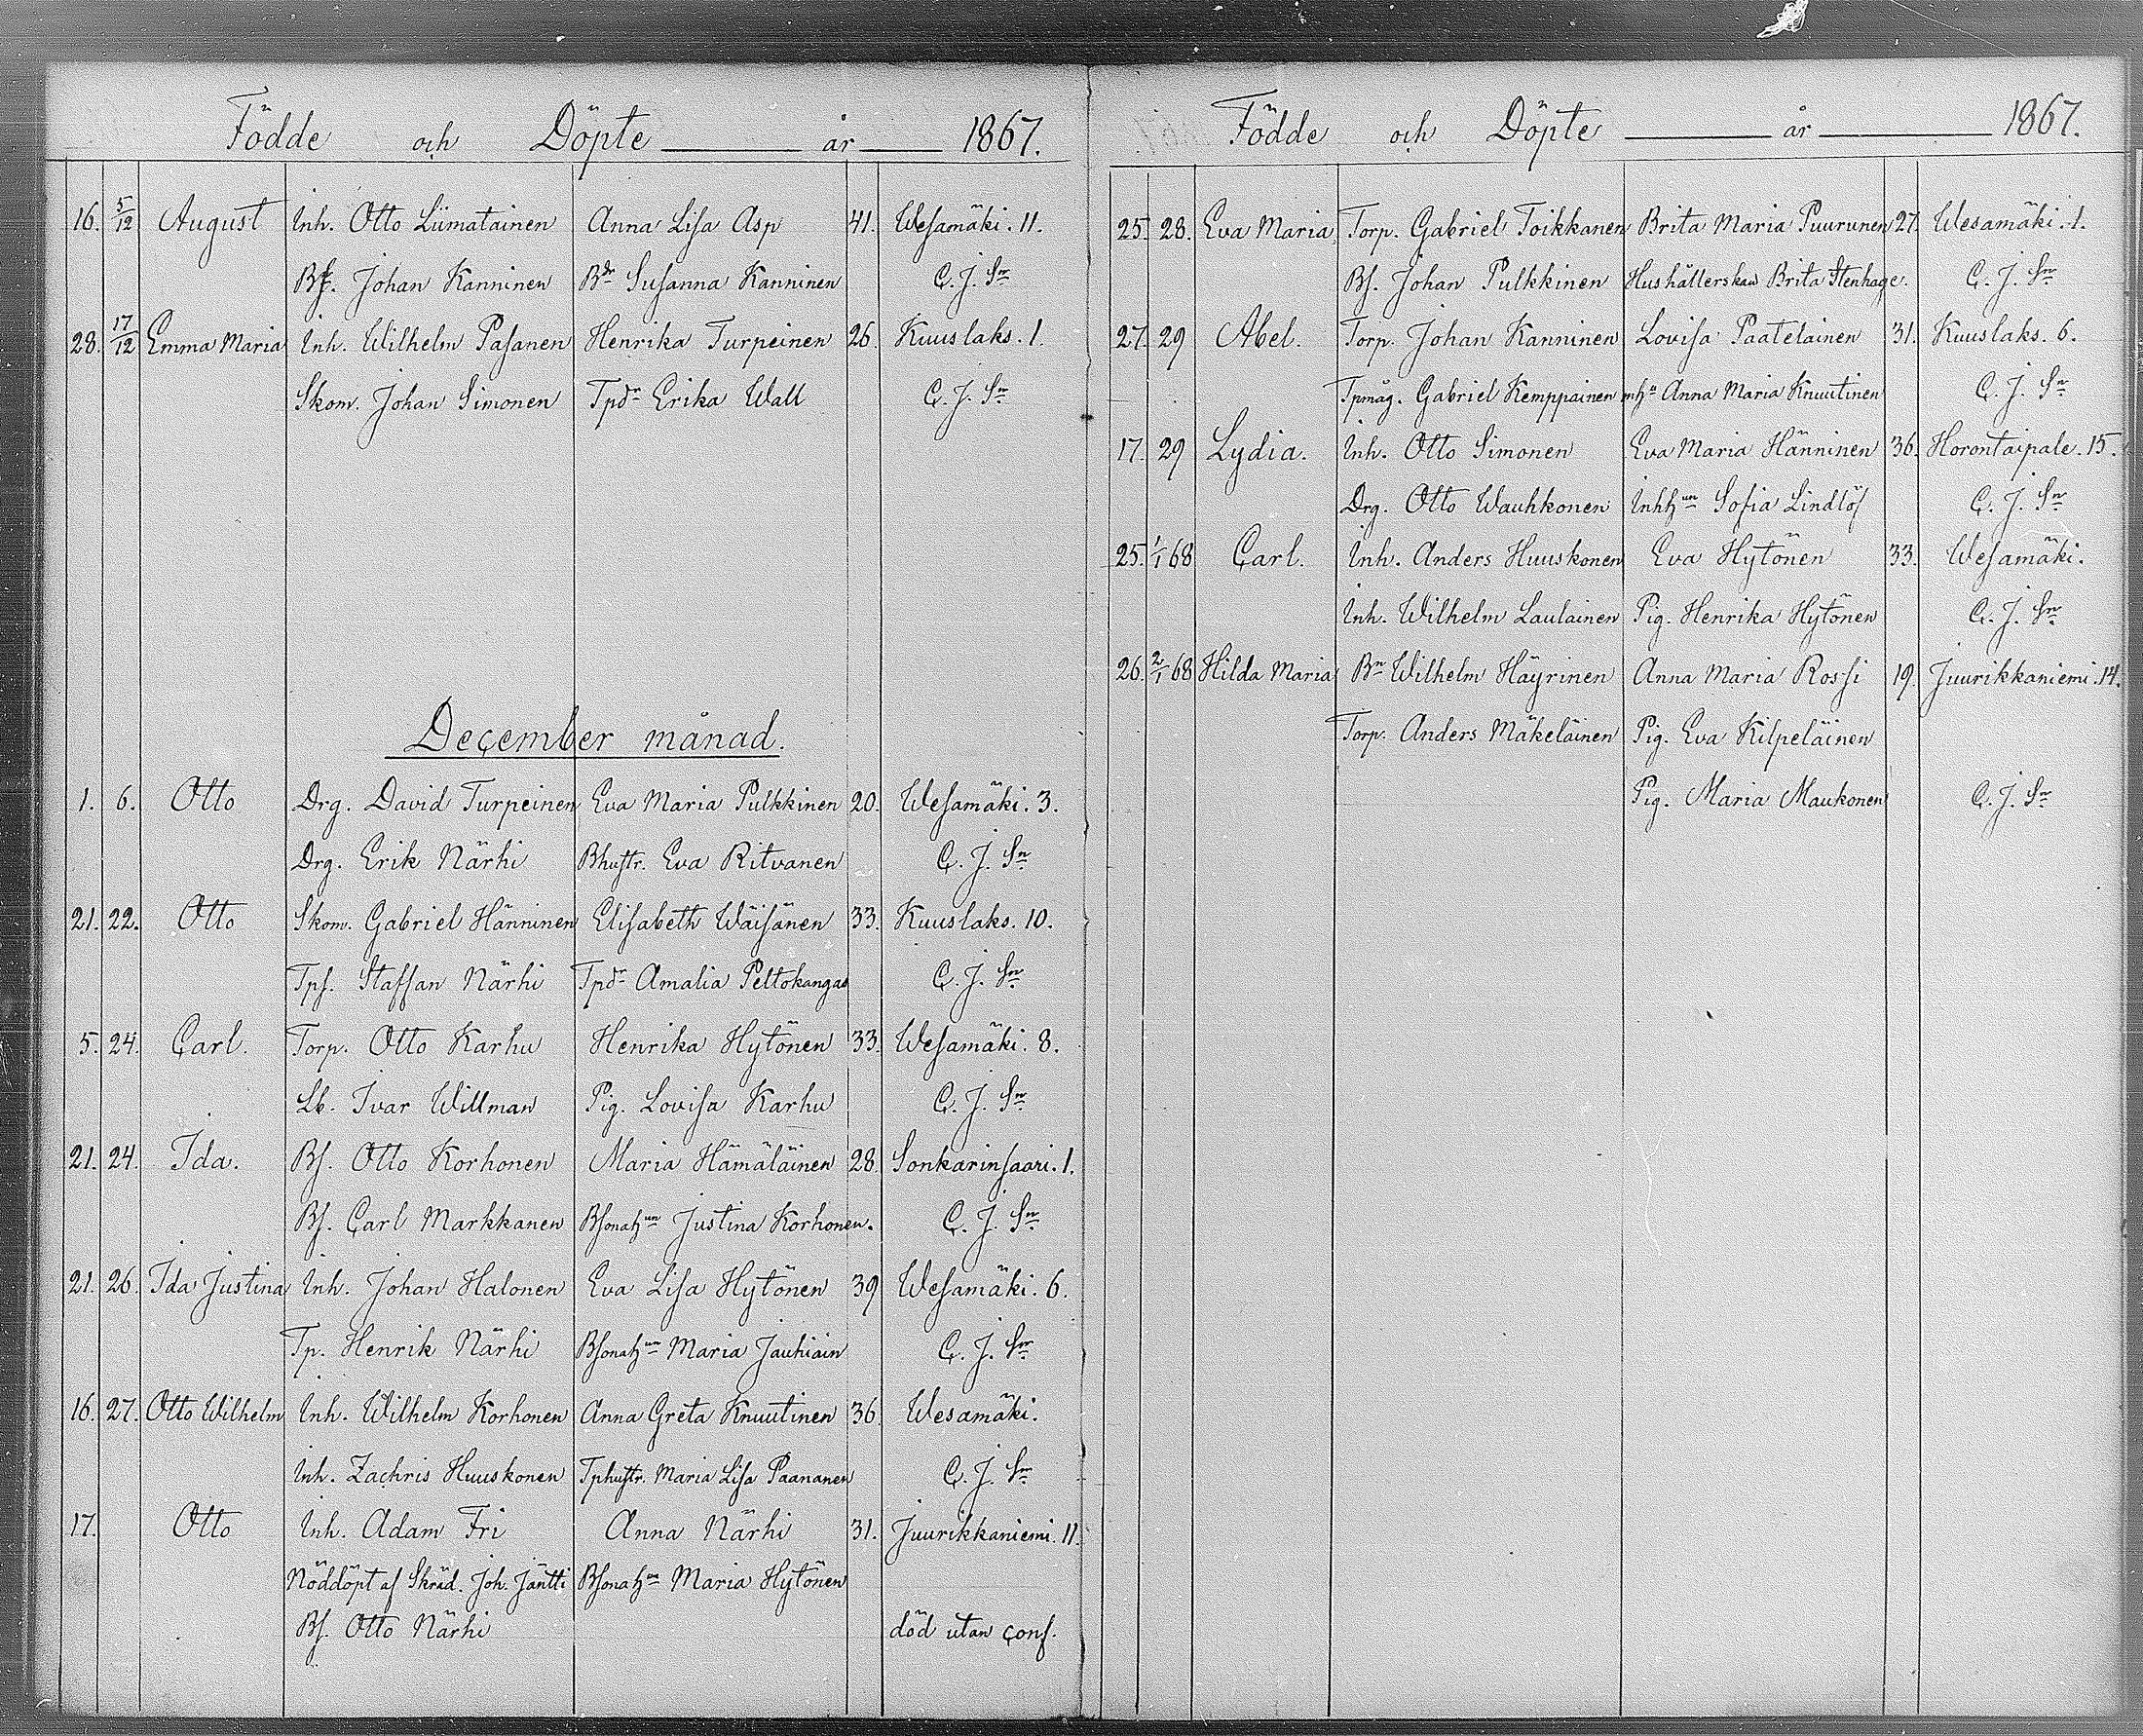 Födde och Döpte år 1867.
16. 5/12 August Inh. Otto Liimatainen Anna Lisa Asp 41. Wesamäki. 11.
Bf. Johan Kanninen Bdr Susanna Kanninen C. J. Sn
28. 17/12 Emma Maria Inh. Wilhelm Pasanen Henrika Turpeinen 26. Kuuslaks. 1.
Skom. Johan Simonen Tpdr Erika Wall C. J. Sn
December månad.
1. 6. Otto Drg. David Turpeinen Eva Maria Pulkkinen 20. Wesamäki. 3.
Drg. Erik Närhi Bhustr. Eva Ritvanen C. J. Sn
21. 22. Otto Skom. Gabriel Hänninen Elisabeth Wäisänen 33. Kuuslaks. 10.
Tps. Staffan Närhi Tpdr Amalia Peltokangas C. J. Sn
5. 24. Carl. Torp. Otto Karhu Henrika Hytönen 33. Wesamäki. 8.
Lb. Ivar Willman Pig. Lovisa Karhu C. J. Sn
21. 24. Ida. Bs. Otto Korhonen Maria Hämäläinen 28. Sonkarinsaari. 1.
Bs. Carl Markkanen Justina Korhonen. C. J. Sn
21. 26. Ida Justina Inh. Johan Halonen Eva Lisa Hytönen 39 Wesamäki. 6.
Tp. Henrik Närhi Maria Jauhiain C. J. Sn
16. 27. Otto Wilhelm Inh. Wilhelm Korhonen Anna Greta Knuutinen 36. Wesamäki.
Inh. Zachris Huuskonen Tphustr. Maria Lisa Paananen C. J. Sn
17. Otto Inh. Adam Fri Anna Närhi 31. Juurikkaniemi. 11.
Nöddöpt af Skräd. Joh. Jäntti Maria Hytönen
Bs. Otto Närhi död utan conf.
Födde och Döpte år 1867.
25. 28. Eva Maria Torp. Gabriel Toikkanen Brita Maria Puurunen 27. Wesamäki. 1.
Bs. Johan Pulkkinen Hushållerskan Brita Stenhage. C. J. Sn
27. 29 Abel. Torp. Johan Kanninen Lovisa Paatelainen 31. Kuuslaks. 6.
Tpmåg. Gabriel Kemppainen Anna Maria Knuutinen C. J. Sn
17. 29 Lydia. Inh. Otto Simonen Eva Maria Hänninen 36. Horontaipale. 15.
Drg. Otto Wauhkonen Sofia Lindlöf C. J. Sn
25. 1/1 68 Carl. Inh. Anders Huuskonen Eva Hytönen 33. Wesamäki.
Inh. Wilhelm Laulainen Pig. Henrika Hytönen C. J. Sn
26. 2/1 68 Hilda Maria Bn Wilhelm Häyrinen Anna Maria Rossi 19. Juurikkaniemi. 14.
Torp. Anders Mäkeläinen Pig. Eva Kilpeläinen
Pig. Maria Maukonen C. J. Sn